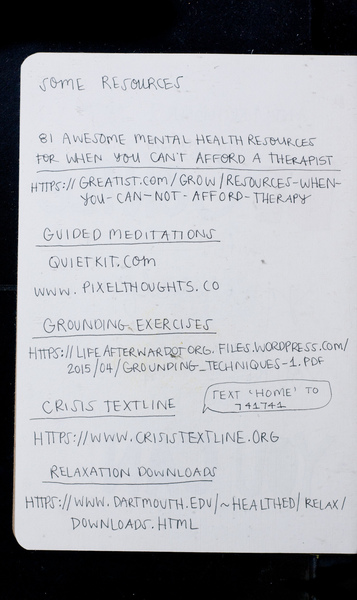 SOME RESOURCES
81 AWESOME MENTAL HEALTH RESOURCES
FOR WHEN YOU CAN'T AFFORD A THERAPIST
HTTPS://GREATIST.COM/GROW/RESOURCES-WHEN-
YOU-CAN-NOT-AFFORD-THERAPY
GUIDED MEDITATIONS
QUIETKIT.COM
WWW.PIXELTHOUGHTS.CO
GROUNDING EXERCISES
HTTPS://LIFEAFTERWARDOTORG.FILES.WORDPRESS.COM/
2015/04/GROUNDING_TECHNIQUES-1.PDF
CRISIS TEXTLINE
TEXT 'HOME' TO
741741
HTTPS://WWW.CRISISTEXTLINE.ORG
RELAXATION DOWNLOADS
HTTPS://WWW.DARTMOUTH.EDU/~HEALTHED/RELAX/
DOWNLOADS.HTML